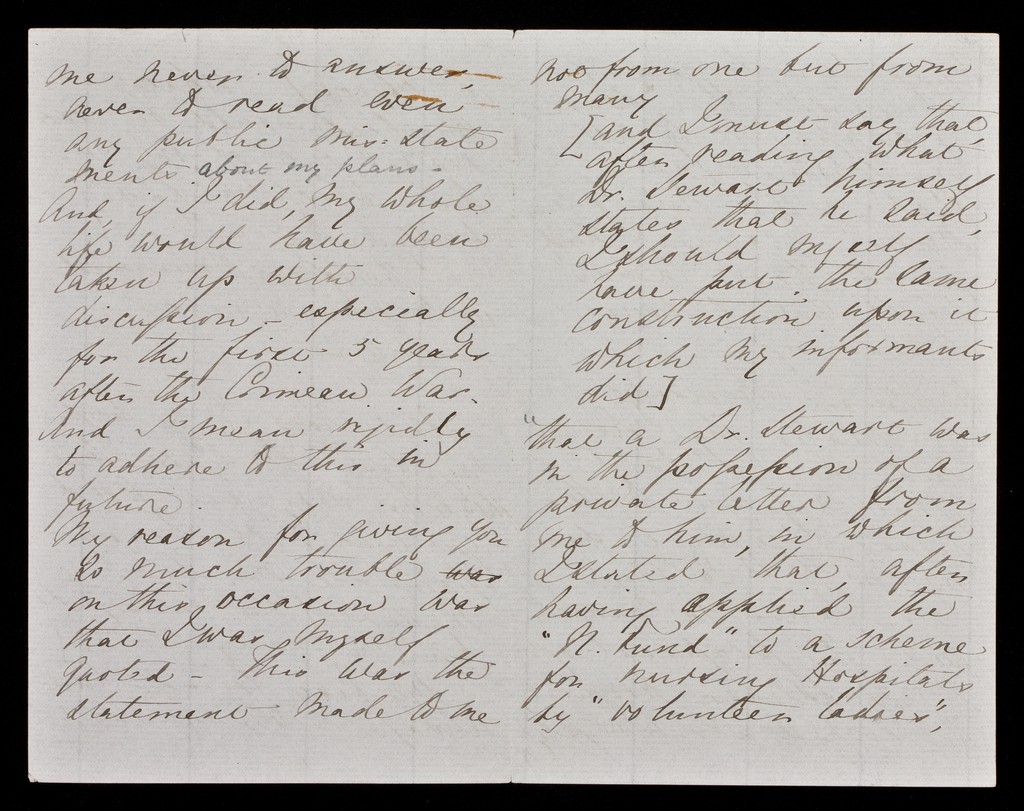 me never to answer,
never to read even,
any public mis-state
ments about my plans -
And, if I did, my whole
life would have been
taken up with
discussion - especially
for the first 5 years
after the Crimean War.
And I mean rigidly
to adhere to this in
future.
My reason for giving you
so much trouble was
on this occasion was
that I was myself
quoted - This was the
statement made to me
not from one but from
many
[and I must say that,
after reading what
Dr. Stewart himself
states that he said,
I should myself
have put the same
construction upon it
which my informants
did]
"that a Dr. Stewart was
in the possession of a
private letter from
me to him, in which
I stated that, after
having applied the
"N. Fund" to a scheme
for nursing Hospitals
by "volunteer ladies",